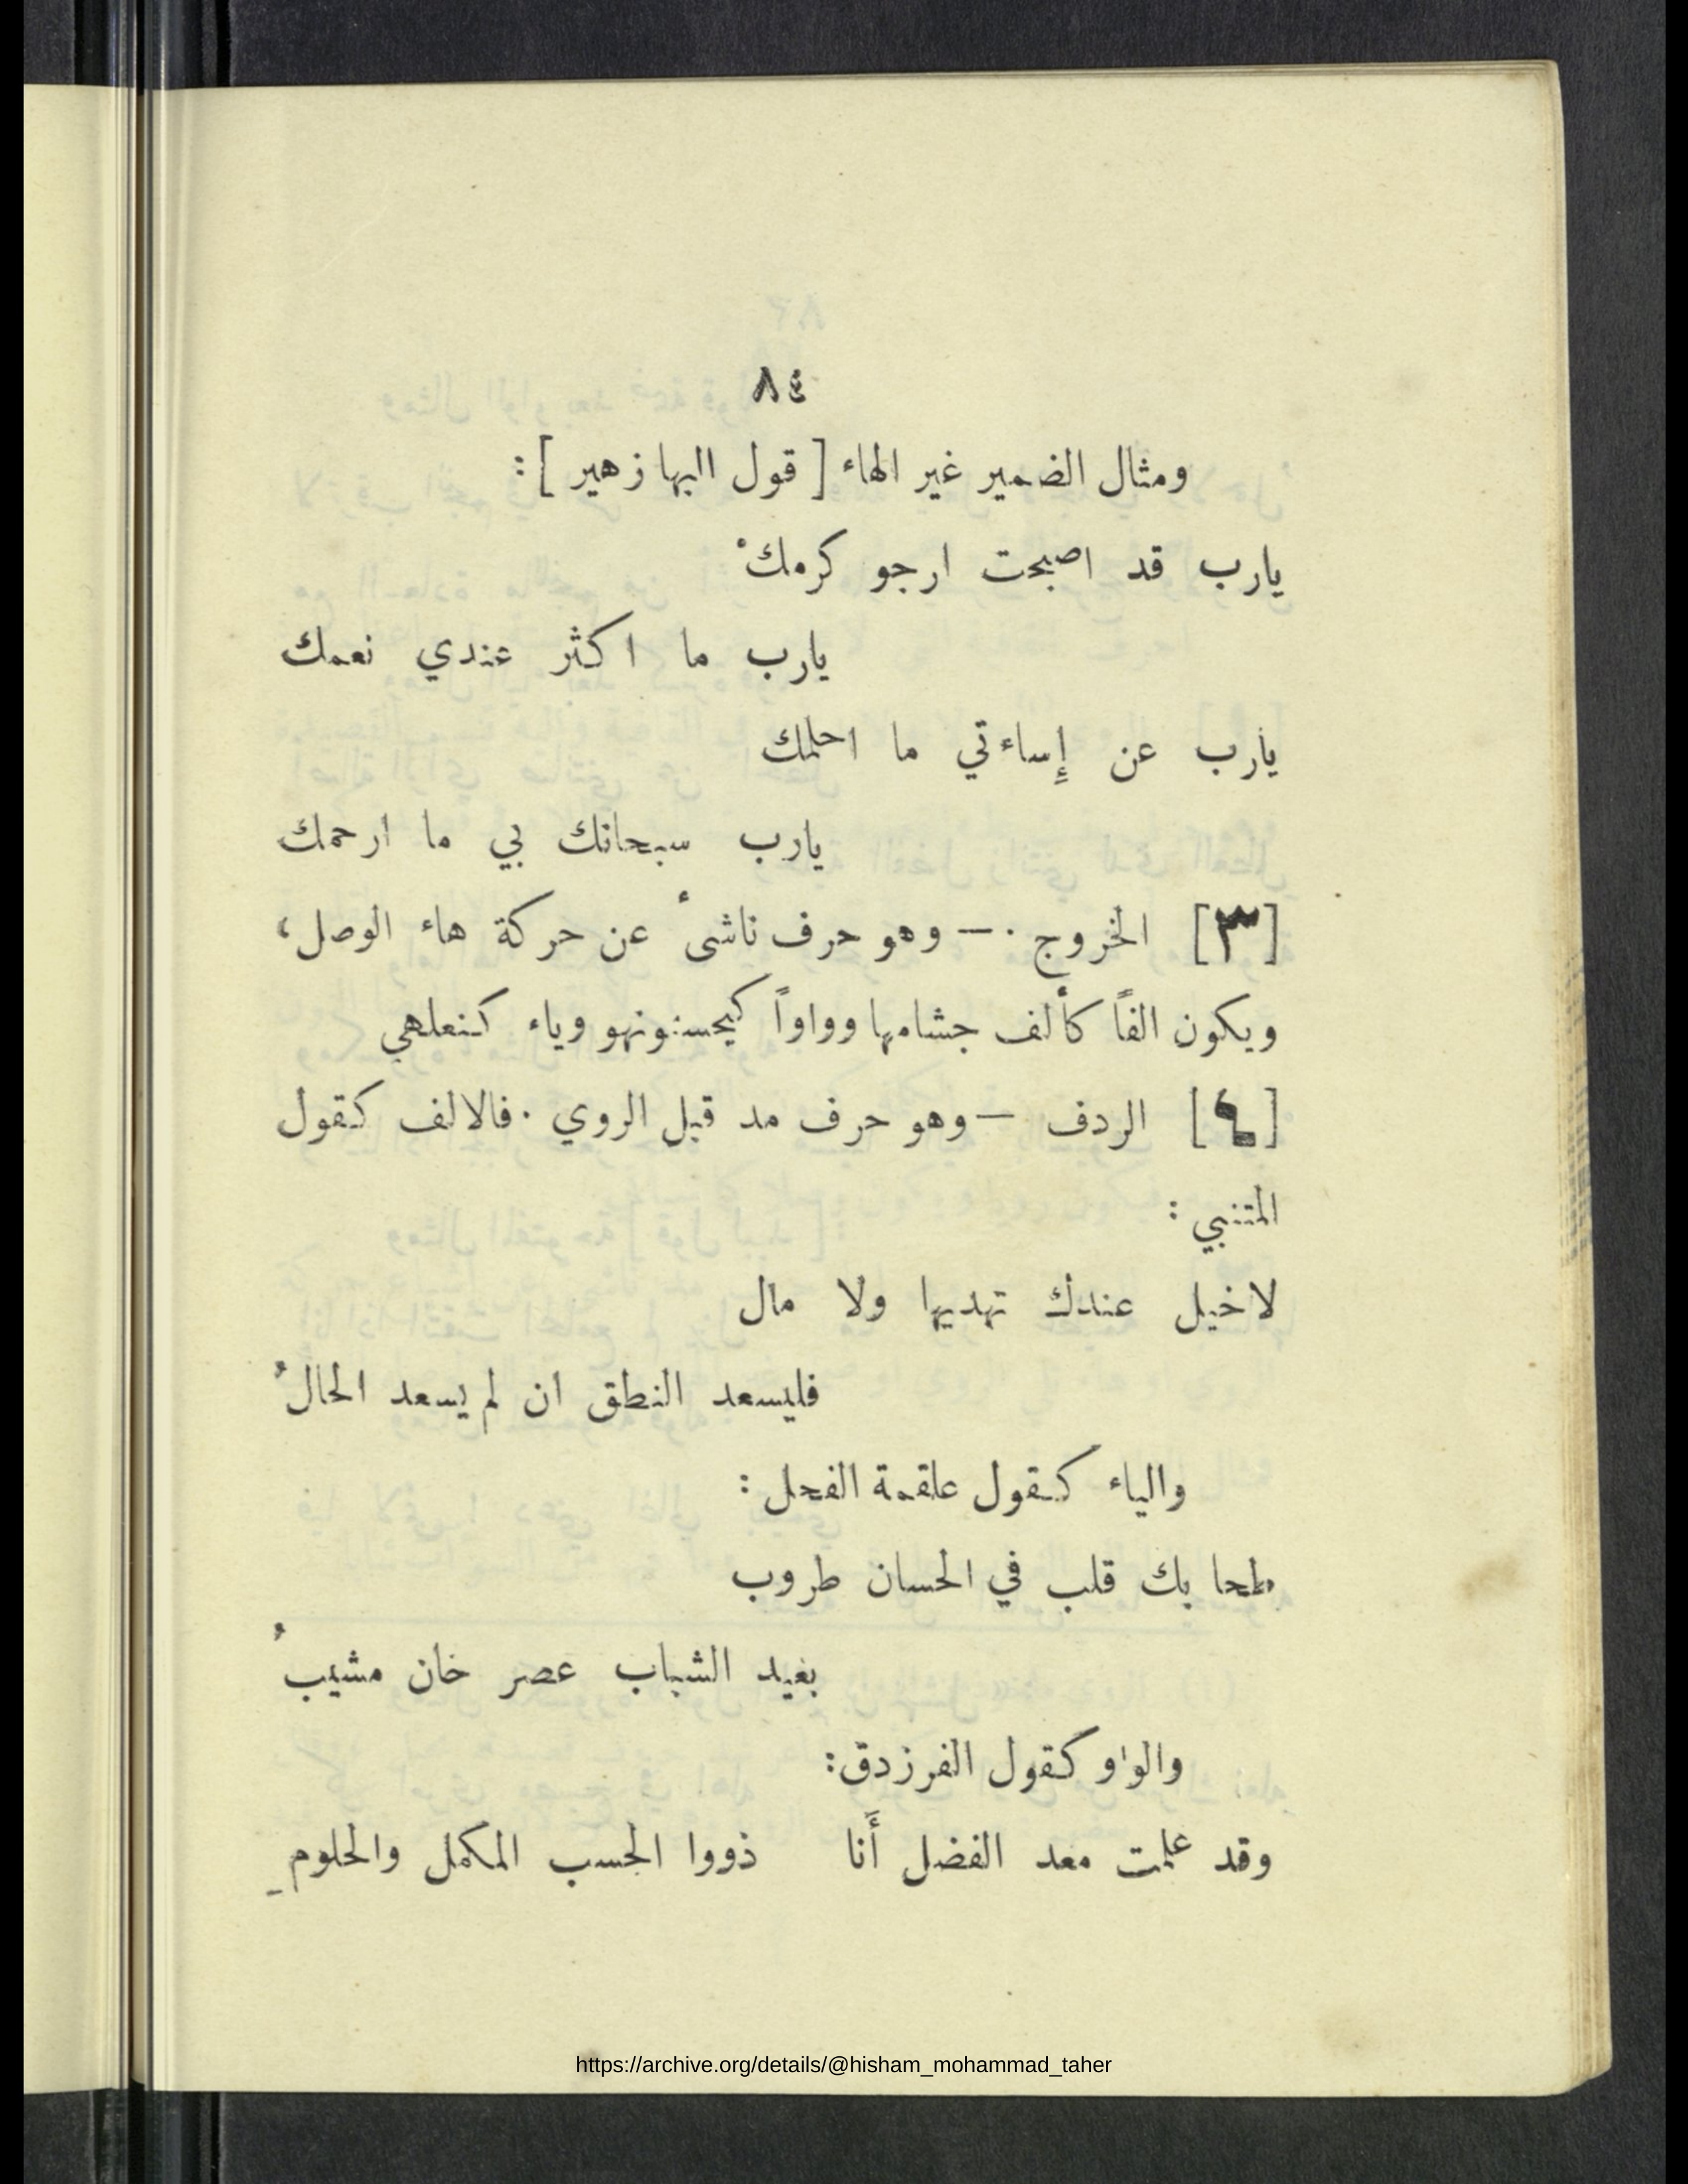 ٨٤
ومثال الضمير غير الهاء [ قول البها زهير ] :
يارب قد اصبحت ارجو كرمكْ
يارب ما اكثر عندي نعمك
يارب عن إِساءتي ما احلمك
يارب سبحانك بي ما ارحمك
[٣] الخروج ٠ — وهو حرف ناشىءٔ عن حركة هاء الوصل ،
ويكون الفاً كأَلف جشامها وواواً كيحسنونهو وياء كنعلهي
[٤] الردف — وهو حرف مد قبل الروي ٠ فالالف كقول
المتنبي :
لاخيل عندك تهديها ولا مال
فليسعد النطق ان لم يسعد الحالُ
والياء كقول علقمة الفحل :
طحا بك قلب في الحسان طروب
بغيد الشباب عصر خان مشيبُ
والواو كقول الفرزدق :
وقد علمت معد الفضل أَنا ذووا الحسب المكمل والحلومِ
https://archive.org/details/@hisham_mohammad_taher